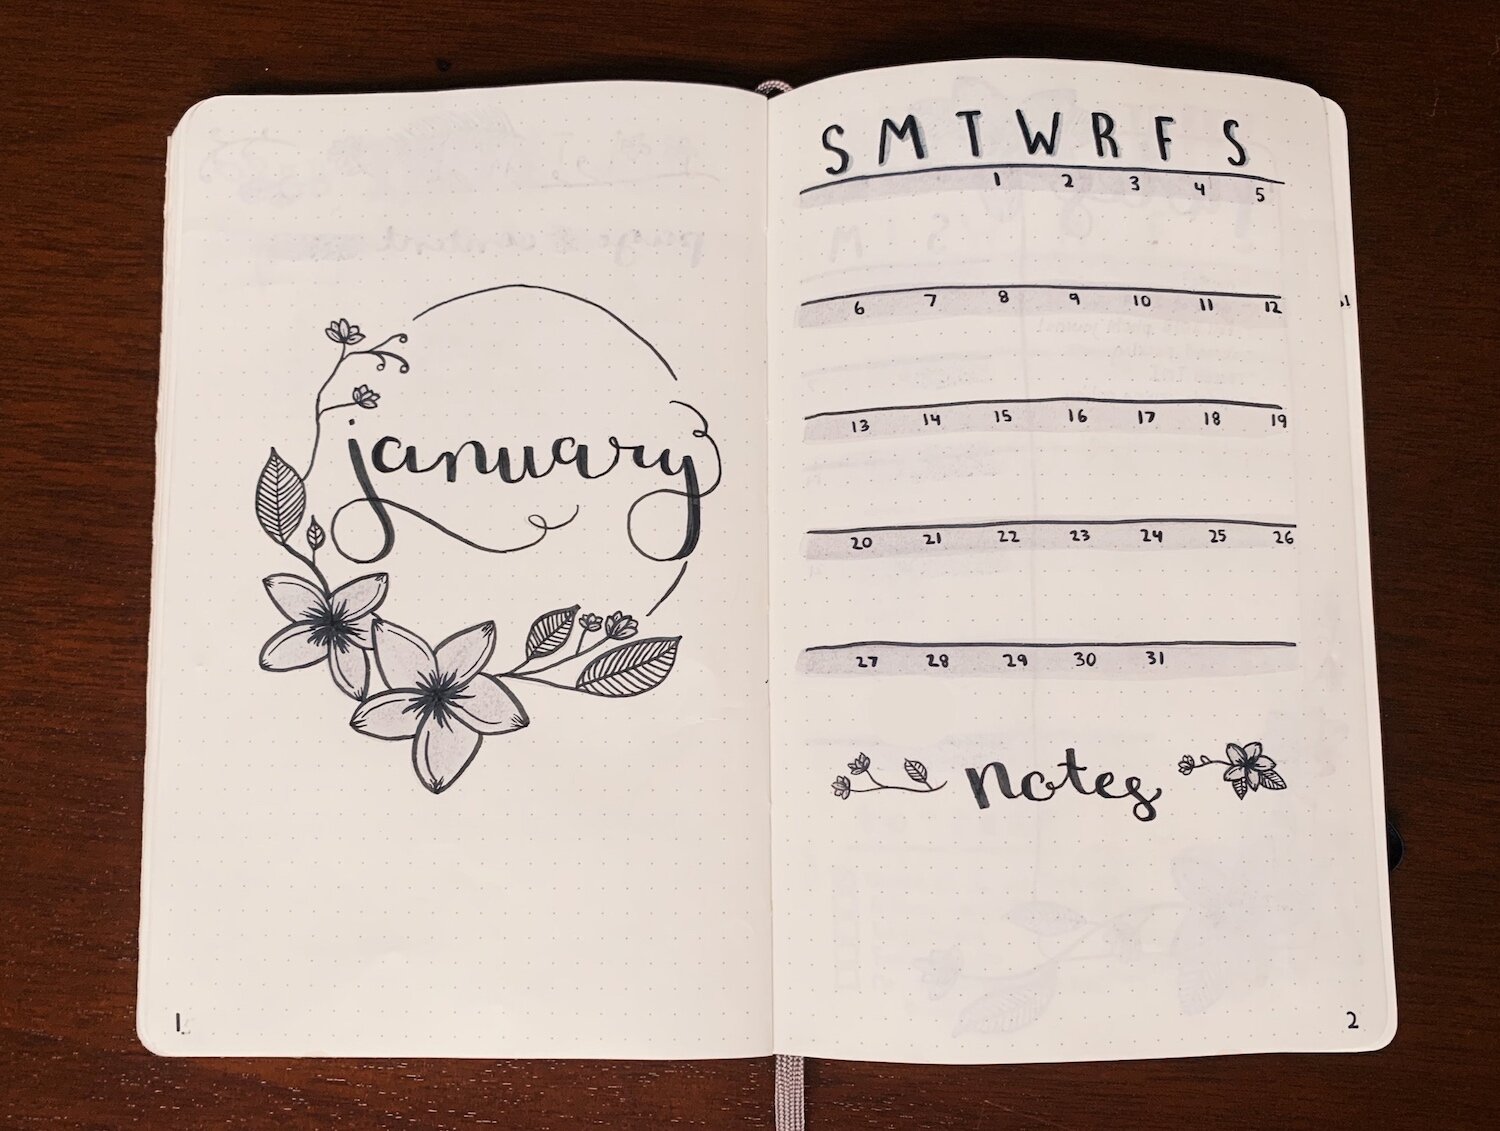 january
1
S M T W R F S
1 2 3 4 5
6 7 8 9 10 11 12
13 14 15 16 17 18 19
20 21 22 23 24 25 26
27 28 29 30 31
notes
2